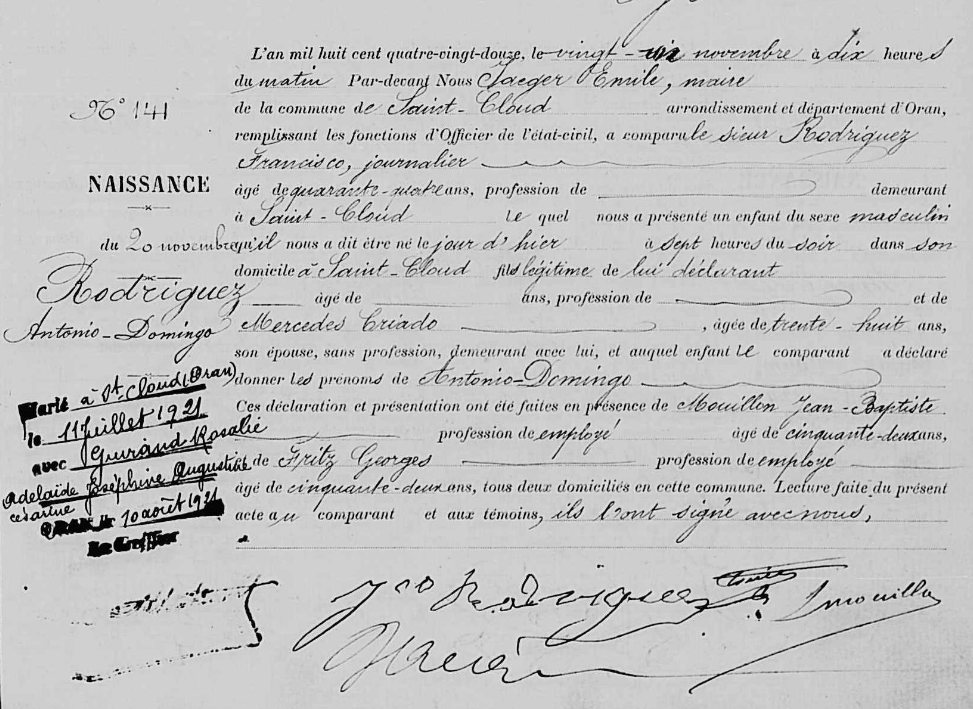 N° 141
NAISSANCE
du 20 novembre
Rodriguez
Antonio-Domingo
Marié à St Cloud (Oran)
le 11 Juillet 1921
avec Guirand Rosalie
Adelaïde Joséphine Augustine
césarine
le 10 août 1921
Le Greffier
L'an mil huit cent quatre-vingt-douze, le vingt- novembre à dix heures
du matin Par-devant Nous Jaeger Emile, maire
de la commune de Saint-Cloud arrondissement et département d'Oran,
remplissant les fonctions d'Officier de l'état-civil, a comparu le sieur Rodriguez
Francisco, journalier
âgé de quarante-quatre ans, profession de demeurant
à Saint-Cloud le quel nous a présenté un enfant du sexe masculin
qu'il nous a dit être né le jour d'hier à sept heures du soir dans son
domicile à Saint-Cloud fils légitime de lui déclarant
âgé de ans, profession de et de
Mercedes Criado, âgée de trente-huit ans,
son épouse, sans profession, demeurant avec lui, et auquel enfant le comparant a déclaré
donner les prénoms de Antonio-Domingo
Ces déclaration et présentation ont été faites en présence de Mouillon Jean-Baptiste
profession de employé âgé de cinquante-deux ans,
et de Fritz Georges profession de employé
âgé de cinquante-deux ans, tous deux domiciliés en cette commune. Lecture faite du présent
acte au comparant et aux témoins, ils l'ont signé avec nous,
Fco Rodriguez